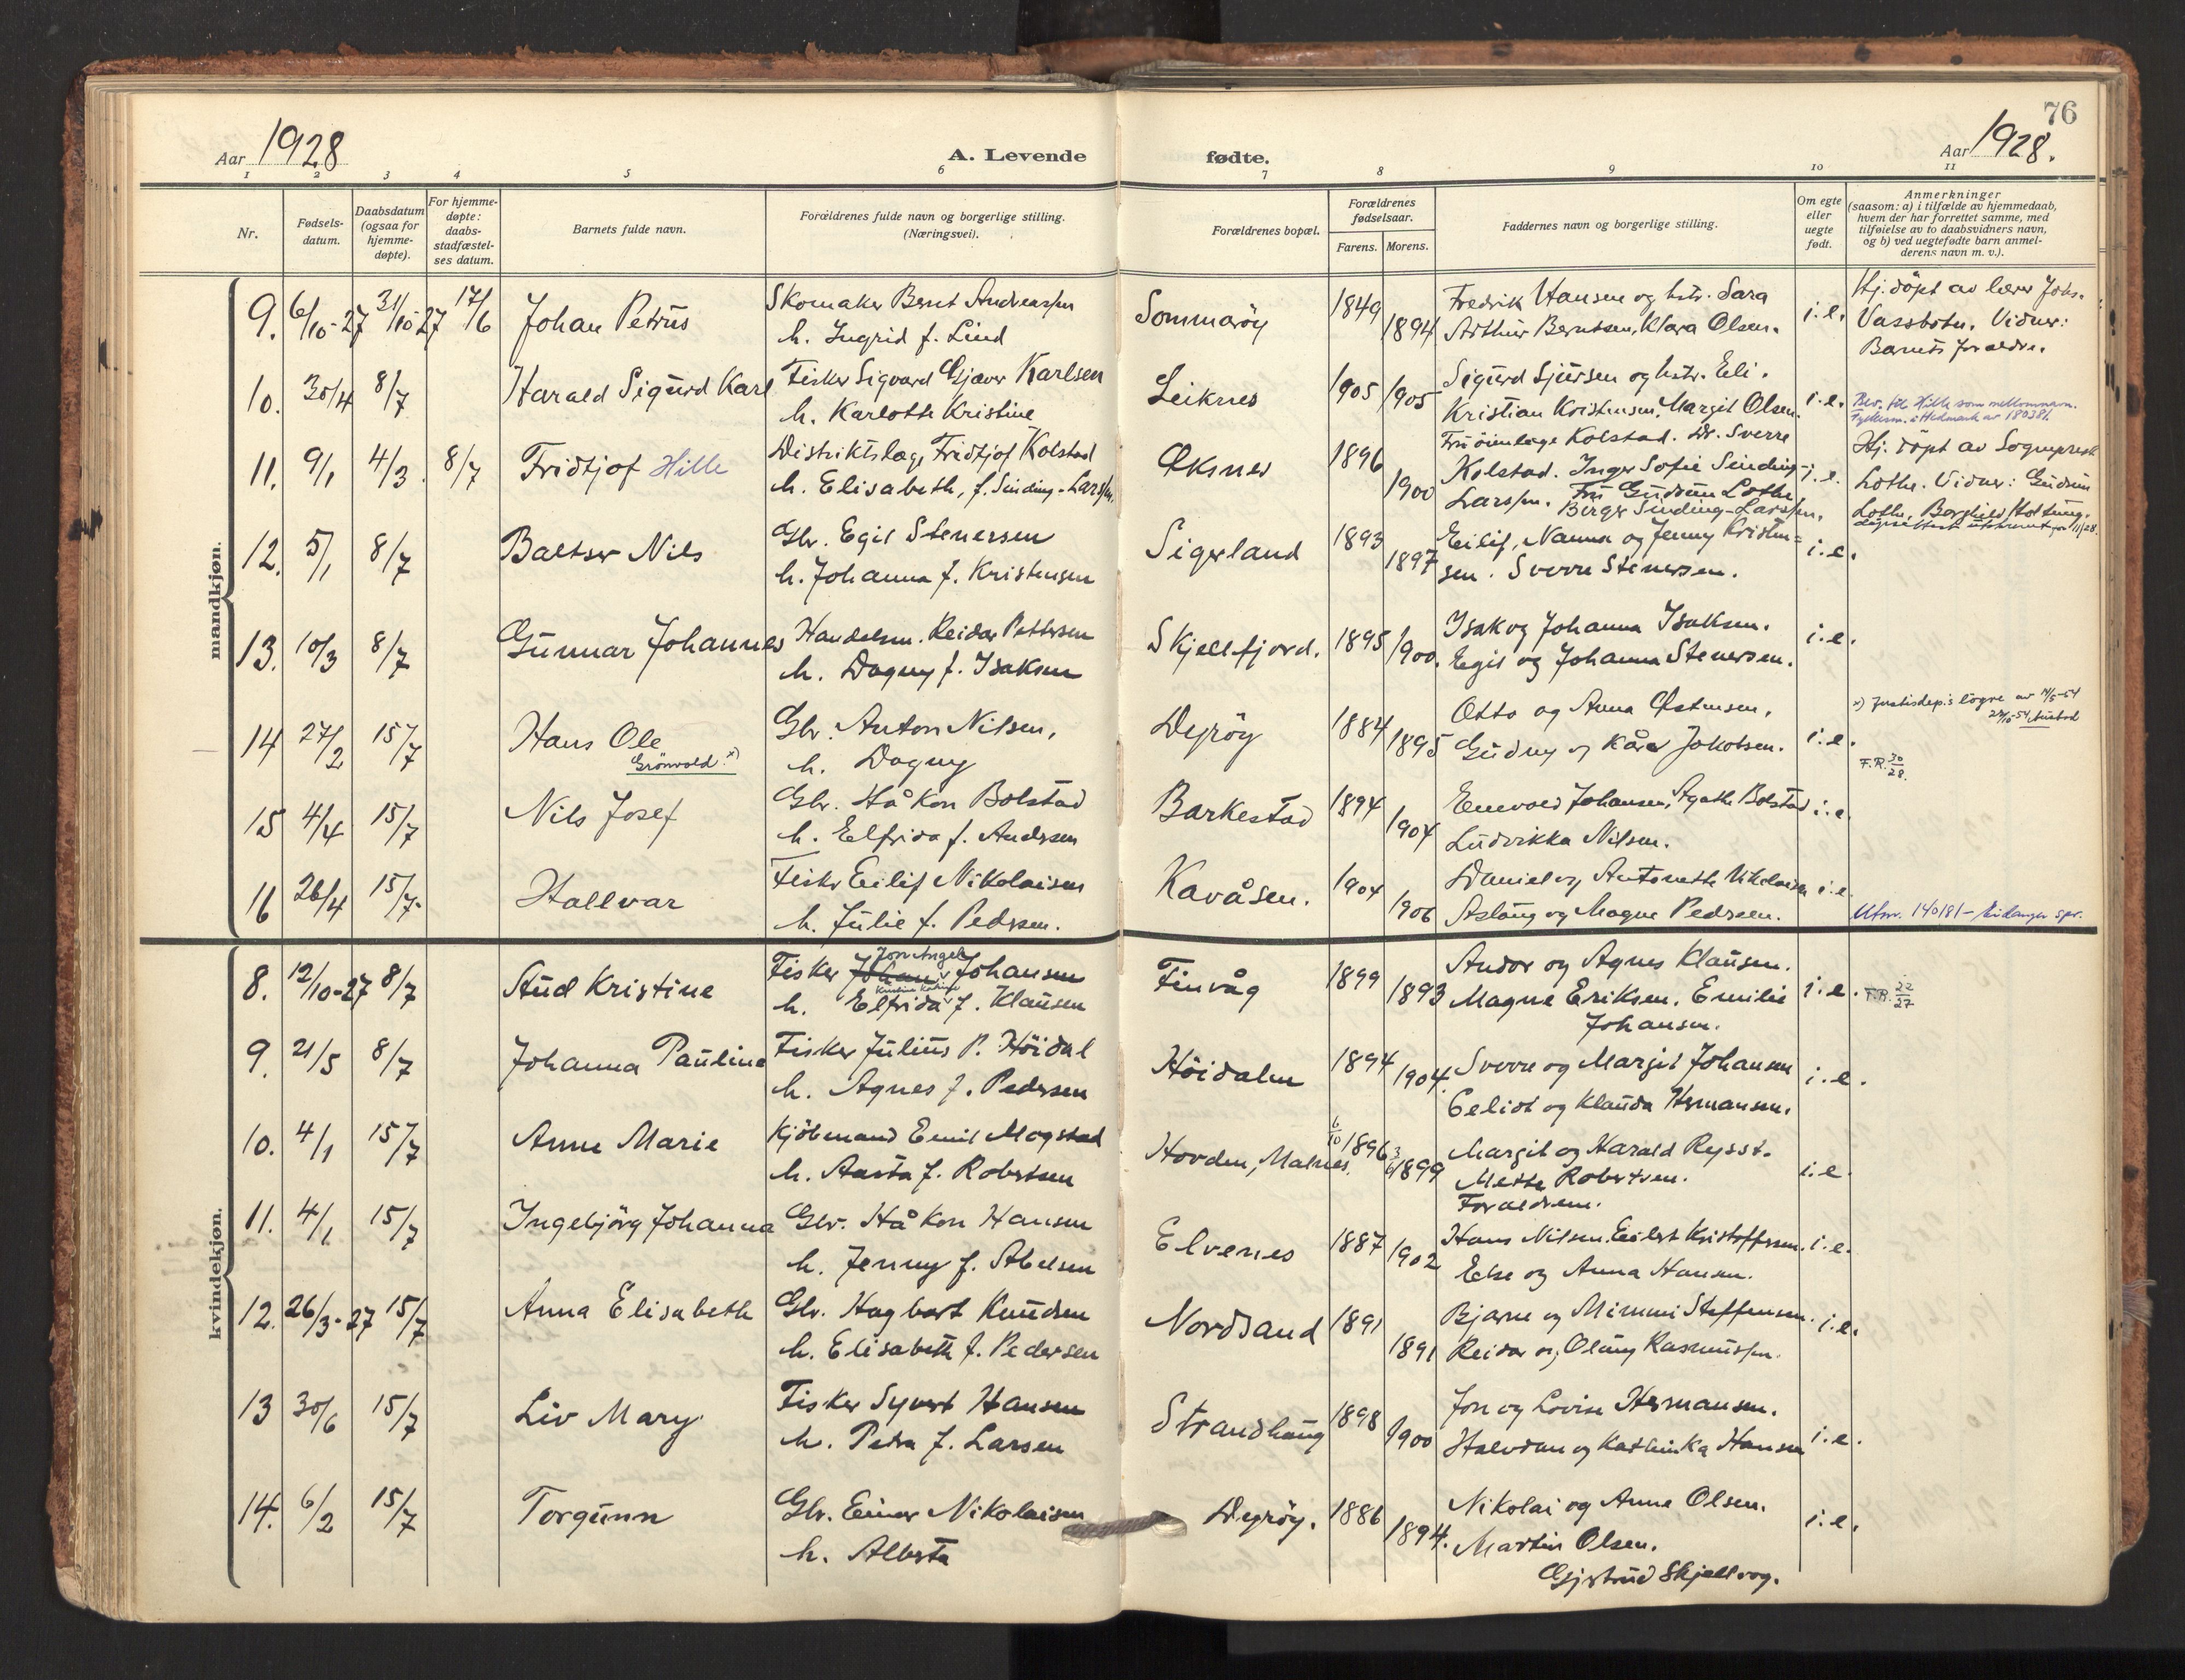 76
Aar 1928
A. Levende
fødte.
Aar 1928.
1 2 3 4 5 6 7 8 9 10 11
Nr.
Fødsels-
datum.
Daabsdatum
(ogsaa for
hjemme-
døpte).
For hjemme-
døpte:
daabs-
stadfæstel-
ses datum.
Barnets fulde navn.
Forældrenes fulde navn og borgerlige stilling.
(Næringsvei).
Forældrenes bopæl.
Forældrenes
fødselsaar.
Farens. Morens.
Faddernes navn og borgerlige stilling.
Om egte
eller
uegte
født.
Anmerkninger
(saasom: a) i tilfælde av hjemmedaab,
hvem der har forrettet samme, med
tilføielse av to daabsvidners navn,
og b) ved uegtefødte barn anmel-
derens navn m. v.).
mandkjøn.
9. 6/10-27 31/10-27 17/6 Johan Petrus
Skomaker Bernt Andreassen
h. Ingrid f. Lind
Sommarøy 1849 1894
Fredrik Hansen og hstr. Sara
Arthur Berntsen, Klara Olsen.
i.e.
Hj. döpt av lærer Johs.
Vassbotn. Vidner:
Barnets forældre.
10. 30/4 8/7 Harald Sigurd Karl
Fisker Sigvard Gjæver Karlsen
h. Karlotte Kristine
Leiknes 1905 1905
Sigurd Sjursen og hstr. Eli.
Kristian Kristensen, Margit Olsen.
i.e.
Bev. til Hille som mellomnavn.
Fylkesm. i Hedmark av 180381.
11. 9/1 4/3. 8/7 Fridtjof Hille
Distriktslæge Fridtjof Kolstad
h. Elisabeth, f. Sinding-Larssen.
Øksnes 1896 1900
Fru öienlæge Kolstad. Dr. Sverre
Kolstad. Inger Sofie Sinding-
Larssen. Fru Gudrun Lothe
Birger Sinding-Larssen.
i.e.
Hj. döpt av Sogneprest
Lothe. Vidner: Gudrun
Lothe, Borghild Holtung.
12. 5/1 8/7 Baltser Nils
Gbr. Egil Stenersen
h. Johanna f. Kristensen
Sigerland 1893 1897
Eilif, Nanna og Jenny Kristen=
sen. Sverre Stenersen.
i.e.
13. 10/3 8/7 Gunnar Johannes
Handelsm. Reidar Pettersen
h. Dagny f. Isaksen
Skjellfjord. 1895 1900.
Isak og Johanna Isaksen.
Egil og Johanna Stenersen.
i.e.
14 27/2 15/7 Hans Ole
Grönvold. x)
Gbr. Anton Nilsen,
h. Dagny
Dyrøy 1884 1895
Otto og Anna Østensen,
Gudny og Kåre Jakobsen.
i.e.
x) Justisdep.s løyve av 14/5-54
F.R. 30/28.
15 4/4 15/7 Nils Josef
Gbr. Håkon Bolstad
h. Elfrida f. Andersen
Barkestad 1894 1904
Enevold Johansen, Agathe Bolstad
Ludvikka Nilsen.
i.e.
16 26/4 15/7. Hallvar
Fisker Eilif Nikolaisen
h. Julie f. Pedersen.
Kavåsen. 1904 1906
Daniel og Antonette Nikolaisen
Aslaug og Magne Pedersen.
i.e.
Utm. 140181 - Eidanger spr.
kvindekjøn.
8. 12/10-27 8/7 Aud Kristine
Jon Angel
Fisker Johan Johansen
h. Elfrida f. Klausen
Finvåg 1899 1893
Andor og Agnes Klausen.
Magne Eriksen. Emilie
Johansen.
i.e.
F.R. 22/27
9. 21/5 8/7 Johanna Pauline
Fisker Julius P. Höidal
h. Agnes f. Pedersen
Höidalen 1894 1904.
Sverre og Margit Johansen
Eelidt og Klauda Hermansen.
i.e.
10. 4/1 15/7 Anne Marie
Kjöbmand Emil Mogstad
h. Aasta f. Robertsen
Hovden, Malnes. 6/10 1896 3/6 1899
Margit og Harald Rysst.
Mette Robertsen.
Forældrene.
i.e.
11. 4/1 15/7 Ingebjörg Johanna
Gbr. Håkon Hansen
h. Jenny f. Abelsen
Elvenes 1887 1902
Hans Nilsen. Eilert Kristoffersen.
Else og Anna Hansen.
i.e.
12. 26/3-27 15/7 Anna Elisabeth
Gbr. Hagbart Knudsen
h. Elisabeth f. Pedersen
Nordsand 1891 1891
Bjarne og Mimmi Steffensen.
Reidar og Olaug Rasmussen.
i.e.
13 30/6 15/7 Liv Mary
Fisker Syvert Hansen
h. Petra f. Larsen
Strandhaug 1898 1900
Jon og Lovise Hermansen.
Halvdan og Kathinka Hansen
i.e.
14. 6/2 15/7 Torgunn
Gbr. Einar Nikolaisen
h. Alberta
Dyrøy. 1886 1894.
Nikolai og Anna Olsen.
Martin Olsen.
Gjertrud Skjellvog.
i.e.